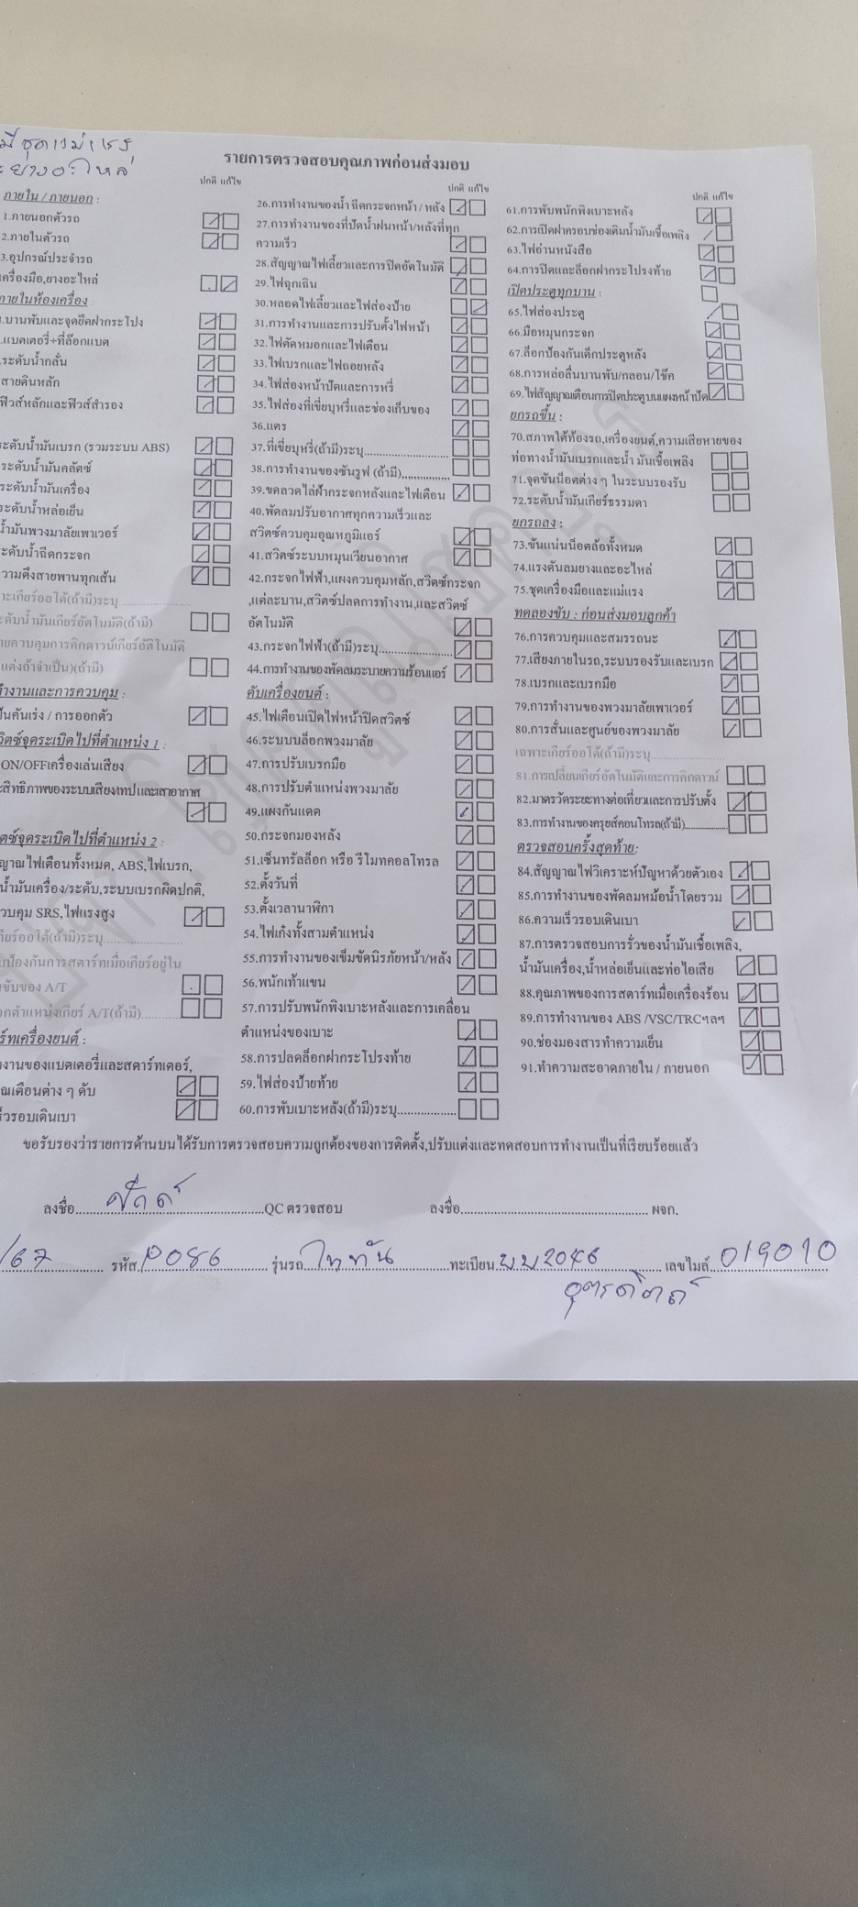 มีชุดแม่แรง
ยางอะไหล่
รายการตรวจสอบคุณภาพก่อนส่งมอบ
ปกติ แก้ไข
ภายใน / ภายนอก :
1.ภายนอกตัวรถ
2.ภายในตัวรถ
3.อุปกรณ์ประจำรถ
เครื่องมือ,ยางอะไหล่
ภายในห้องเครื่อง
.บานพับและจุดยึดฝากระโปง
.แบตเตอรี่+ที่ล๊อกแบต
ระดับน้ำกลั่น
สายดินหลัก
ฟิวส์หลักและฟิวส์สำรอง
ระดับน้ำมันเบรก (รวมระบบ ABS)
ระดับน้ำมันคลัตช์
ระดับน้ำมันเครื่อง
ระดับน้ำหล่อเย็น
น้ำมันพวงมาลัยเพาเวอร์
ระดับน้ำฉีดกระจก
ความตึงสายพานทุกเส้น
เฉพาะเกียร์ออโต้(ถ้ามี)ระบุ
ระดับน้ำมันเกียร์อัตโนมัติ(ถ้ามี)
สายควบคุมการคิกดาวน์เกียร์อัตโนมัติ
แต่งถ้าจำเป็น)(ถ้ามี)
ทำงานและการควบคุม :
เป็นคันเร่ง / การออกตัว
สวิตซ์จุดระเบิดไปที่ตำแหน่ง 1 :
ON/OFFเครื่องเล่นเสียง
ประสิทธิภาพของระบบเสียงเทปและเสาอากาศ
สวิตซ์จุดระเบิดไปที่ตำแหน่ง 2 :
สัญญาณไฟเตือนทั้งหมด, ABS,ไฟเบรก,
น้ำมันเครื่อง/ระดับ,ระบบเบรกผิดปกติ,
ควบคุม SRS,ไฟแรงสูง
เกียร์ออโต้(ถ้ามี)ระบุ
ป้องกันการสตาร์ทเมื่อเกียร์อยู่ใน
ขับของ A/T
บอกตำแหน่งเกียร์ A/T(ถ้ามี)
สตาร์ทเครื่องยนต์ :
ทำงานของแบตเตอรี่และสตาร์ทเตอร์,
สัญญาณเตือนต่าง ๆ ดับ
ความเร็วรอบเดินเบา
ปกติ แก้ไข
26.การทำงานของน้ำฉีดกระจกหน้า / หลัง
27.การทำงานของที่ปัดน้ำฝนหน้า/หลังที่ทุก
ความเร็ว
28.สัญญาณไฟเลี้ยวและการปิดอัตโนมัติ
29.ไฟฉุกเฉิน
30.หลอดไฟเลี้ยวและไฟส่องป้าย
31.การทำงานและการปรับตั้งไฟหน้า
32.ไฟตัดหมอกและไฟเตือน
33.ไฟเบรกและไฟถอยหลัง
34.ไฟส่องหน้าปัดและการหรี่
35.ไฟส่องที่เขี่ยบุหรี่และช่องเก็บของ
36.แตร
37.ที่เขี่ยบุหรี่(ถ้ามี)ระบุ
38.การทำงานของซันรูฟ (ถ้ามี)
39.ขดลวดไล่ฝ้ากระจกหลังและไฟเตือน
40.พัดลมปรับอากาศทุกความเร็วและ
สวิตซ์ควบคุมอุณหภูมิแอร์
41.สวิตซ์ระบบหมุนเวียนอากาศ
42.กระจกไฟฟ้า,แผงควบคุมหลัก,สวิตซ์กระจก
,แต่ละบาน,สวิตซ์ปลดการทำงาน,และสวิตซ์
อัตโนมัติ
43.กระจกไฟฟ้า(ถ้ามี)ระบุ
44.การทำงานของพัดลมระบายความร้อนแอร์
ดับเครื่องยนต์ :
45.ไฟเตือนเปิดไฟหน้าปิดสวิตซ์
46.ระบบบล็อกพวงมาลัย
47.การปรับเบรกมือ
48.การปรับตำแหน่งพวงมาลัย
49.แผงกันแดด
50.กระจกมองหลัง
51.เซ็นทรัลล็อก หรือ รีโมทคอลโทรล
52.ตั้งวันที่
53.ตั้งเวลานาฬิกา
54.ไฟเก๋งทั้งสามตำแหน่ง
55.การทำงานของเข็มขัดนิรภัยหน้า/หลัง
56.พนักเท้าแขน
57.การปรับพนักพิงเบาะหลังและการเคลื่อน
ตำแหน่งของเบาะ
58.การปลดล็อกฝากระโปรงท้าย
59.ไฟส่องป้ายท้าย
60.การพับเบาะหลัง(ถ้ามี)ระบุ
ปกติ แก้ไข
61.การพับพนักพิงเบาะหลัง
62.การเปิดฝาครอบช่องเติมน้ำมันเชื้อเพลิง
63.ไฟอ่านหนังสือ
64.การปิดและล็อกฝากระโปรงท้าย
เปิดประตูทุกบาน :
65.ไฟส่องประตู
66.มือหมุนกระจก
67.ล็อกป้องกันเด็กประตูหลัง
68.การหล่อลื่นบานพับ/กลอน/โช๊ค
69.ไฟสัญญาณเตือนการปิดประตูบนแผงหน้าปัด
ยกรถขึ้น :
70.สภาพใต้ท้องรถ,เครื่องยนต์,ความเสียหายของ
ท่อทางน้ำมันเบรกและน้ำมันเชื้อเพลิง
71.จุดขันน็อตต่าง ๆ ในระบบรองรับ
72.ระดับน้ำมันเกียร์ธรรมดา
ยกรถลง :
73.ขันแน่นน็อตล้อทั้งหมด
74.แรงดันลมยางและอะไหล่
75.ชุดเครื่องมือและแม่แรง
ทดลองขับ : ก่อนส่งมอบลูกค้า
76.การควบคุมและสมรรถนะ
77.เสียงภายในรถ,ระบบรองรับและเบรก
78.เบรกและเบรกมือ
79.การทำงานของพวงมาลัยเพาเวอร์
80.การสั่นและศูนย์ของพวงมาลัย
เฉพาะเกียร์ออโต้(ถ้ามี)ระบุ
81.การเปลี่ยนเกียร์อัตโนมัติและการคิกดาวน์
82.มาตรวัดระยะทางต่อเที่ยวและการปรับตั้ง
83.การทำงานของครุยส์คอนโทรล(ถ้ามี)
ตรวจสอบครั้งสุดท้าย:
84.สัญญาณไฟวิเคราะห์ปัญหาด้วยตัวเอง
85.การทำงานของพัดลมหม้อน้ำโดยรวม
86.ความเร็วรอบเดินเบา
87.การตรวจสอบการรั่วของน้ำมันเชื้อเพลิง,
น้ำมันเครื่อง,น้ำหล่อเย็นและท่อไอเสีย
88.คุณภาพของการสตาร์ทเมื่อเครื่องร้อน
89.การทำงานของ ABS /VSC/TRCฯลฯ
90.ช่องมองสารทำความเย็น
91.ทำความสะอาดภายใน / ภายนอก
ขอรับรองว่ารายการด้านบนได้รับการตรวจสอบความถูกต้องของการติดตั้ง,ปรับแต่งและทดสอบการทำงานเป็นที่เรียบร้อยแล้ว
ลงชื่อ ศักดิ์ QC ตรวจสอบ ลงชื่อ ผจก.
/67 รหัส P086 รุ่นรถ ไททัน ทะเบียน บบ2046 เลขไมล์ 019010
อุตรดิตถ์